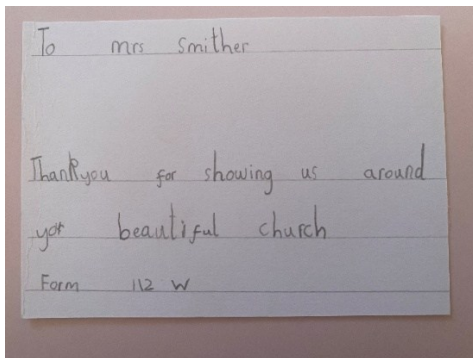 To mrs smither
Thankyou for showing us around
yor beautiful church
Form 112 W